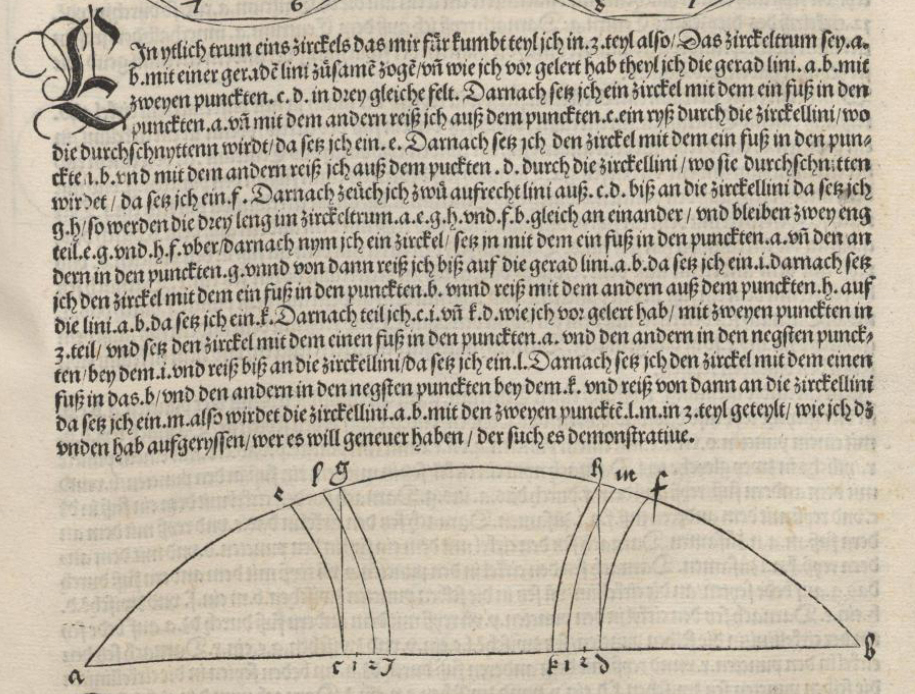 7 6 8 7
EJn ytlich trum eins zirckels das mir für kumbt teyl jch in .3. teyl also / Das zirckeltrum sey .a.
b. mit einer geradē lini zůsamē zogē / vñ wie jch vor gelert hab theyl jch die gerad lini .a.b. mit
zweyen punckten .c.d. in drey gleiche felt. Darnach setz jch ein zirckel mit dem ein fuß in den
punckten .a. vñ mit dem andern reiß jch auß dem punckten .c. ein ryß durch die zirckellini / wo
die durchschnyttenn wirdt / da setz jch ein .e. Darnach setz jch den zirckel mit dem ein fuß in den pun⸗
ckte i.b. vnd mit dem andern reiß jch auß dem puckten .d. durch die zirckellini / wo sie durchschnitten
wirdet / da setz jch ein .f. Darnach zeüch jch zwů aufrecht lini auß .c.d. biß an die zirckellini da setz jch
g.h / so werden die drey leng im zirckeltrum .a.e.g.h. vnd .f.b. gleich an einander / vnd bleiben zwey eng
teil .e.g. vnd .h.f. vber / darnach nym jch ein zirckel / setz jn mit dem ein fuß in den punckten .a. vñ den an
dern in den punckten .g. vnnd von dann reiß jch biß auf die gerad lini .a.b. da setz jch ein .i. darnach setz
jch den zirckel mit dem ein fuß in den punckten .b. vnnd reiß mit dem andern auß dem punckten .h. auf
die lini .a.b. da setz jch ein .k. Darnach teil jch .c.i. vñ k.d. wie jch vor gelert hab / mit zweyen punckten in
3. teil / vnd setz den zirckel mit dem einen fuß in den punckten .a. vnd den andern in den negsten punck⸗
ten / bey dem .i. vnd reiß biß an die zirckellini / da setz jch ein .l. Darnach setz jch den zirckel mit dem einen
fuß in das .b / vnd den andern in den negsten punckten bey dem .k. vnd reiß von dann an die zirckellini
da setz jch ein .m. also wirdet die zirckellini .a.b. mit den zweyen punctē .l.m. in 3. teyl geteylt / wie jch dz
vnden hab aufgeryssen / wer es will geneuer haben / der such es demonstratiue.
e l g h m f
a c 1 2 J k 1 2 d b